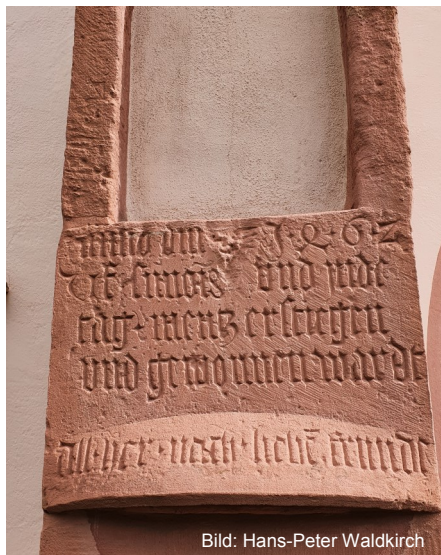 anno dm 1·4·6·2
uff simōis und jude
tag · mentz erstiegen
und gewonnen wardt
all·her·nach·liebē frundt
Bild: Hans-Peter Waldkirch